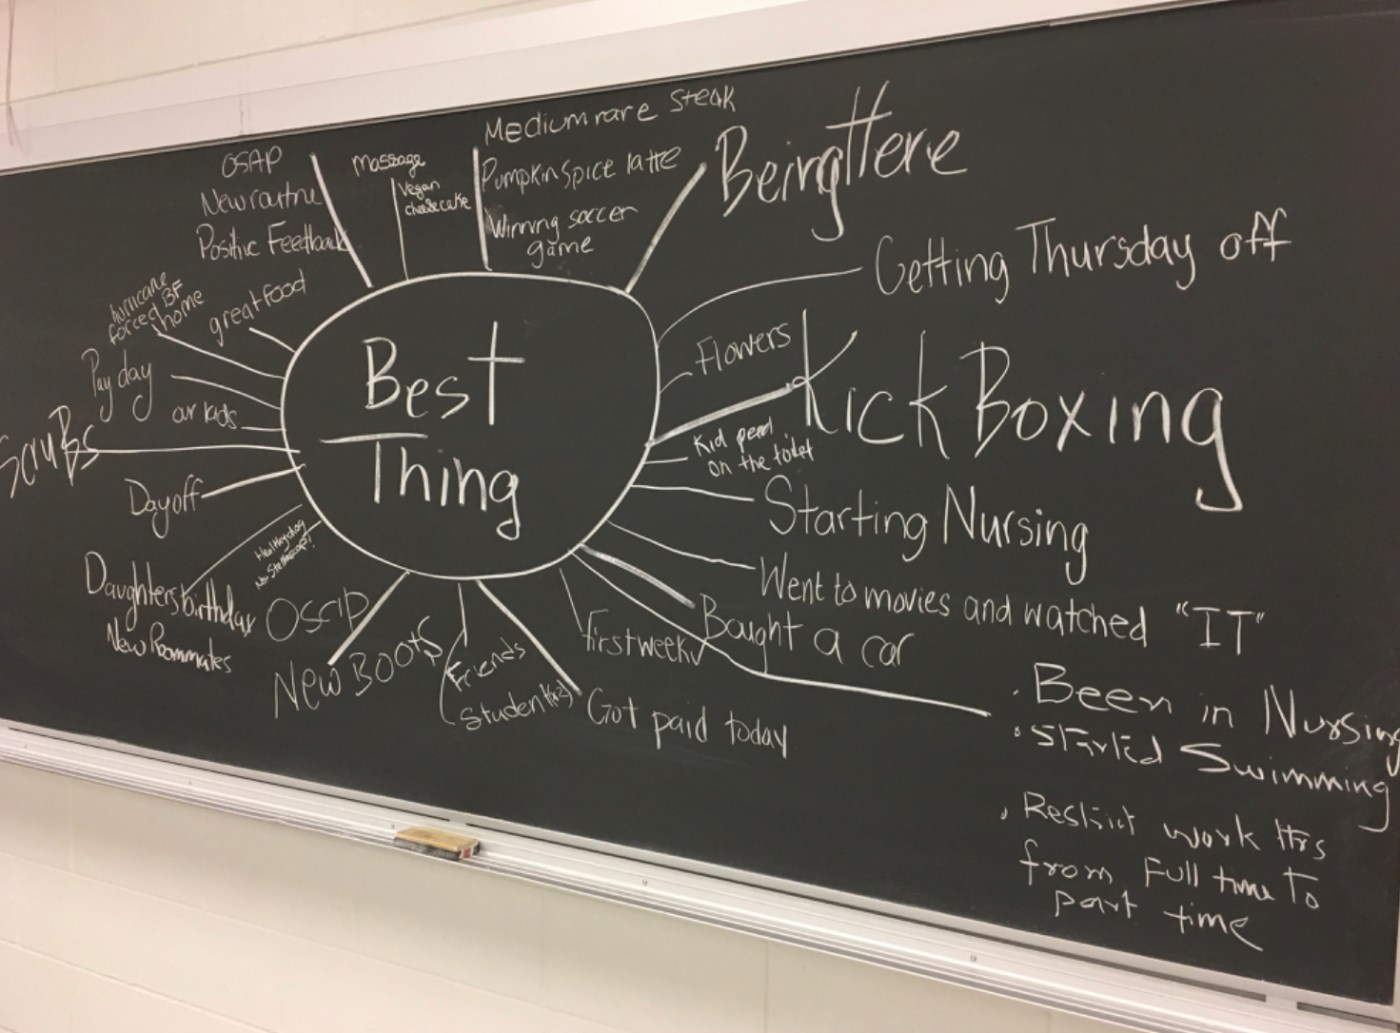 Best
Thing
OSAP
New routine
Positive Feedback
massage
Vegan
cheesecake
Medium rare steak
Pumpkin spice latte
Winning soccer
game
Being Here
Getting Thursday off
Flowers
Kick Boxing
Kid peed
on the toilet
Starting Nursing
Went to movies and watched "IT"
Bought a car
· Been in Nursing
· Started Swimming
· Restrict work Hrs
from Full time To
part time
first week
Got paid today
Friends
Student
New BOOTS
OSAP
Healthy dog
New Stethoscope!
Daughters birthday
New Roommates
Day off
ScruBs
our kids
Pay day
hurricane
forced BF
home
great food